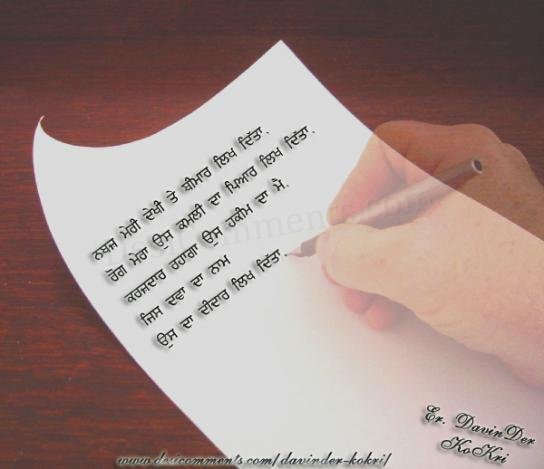 ਨਬਜ਼ ਮੇਰੀ ਦੇਖੀ ਤੇ ਬੀਮਾਰ ਲਿਖ ਦਿੱਤਾ.
ਰੋਗ ਮੇਰਾ ਉਸ ਕਮਲੀ ਦਾ ਪਿਆਰ ਲਿਖ ਦਿੱਤਾ.
ਕਰਜਦਾਰ ਰਹਾਂਗਾ ਉਸ ਹਕੀਮ ਦਾ ਮੈਂ.
ਜਿਸ ਦਵਾ ਦਾ ਨਾਮ
ਉਸ ਦਾ ਦੀਦਾਰ ਲਿਖ ਦਿੱਤਾ.
Er. DavinDer
KoKri
www.desicomments.com/davinder-kokri/